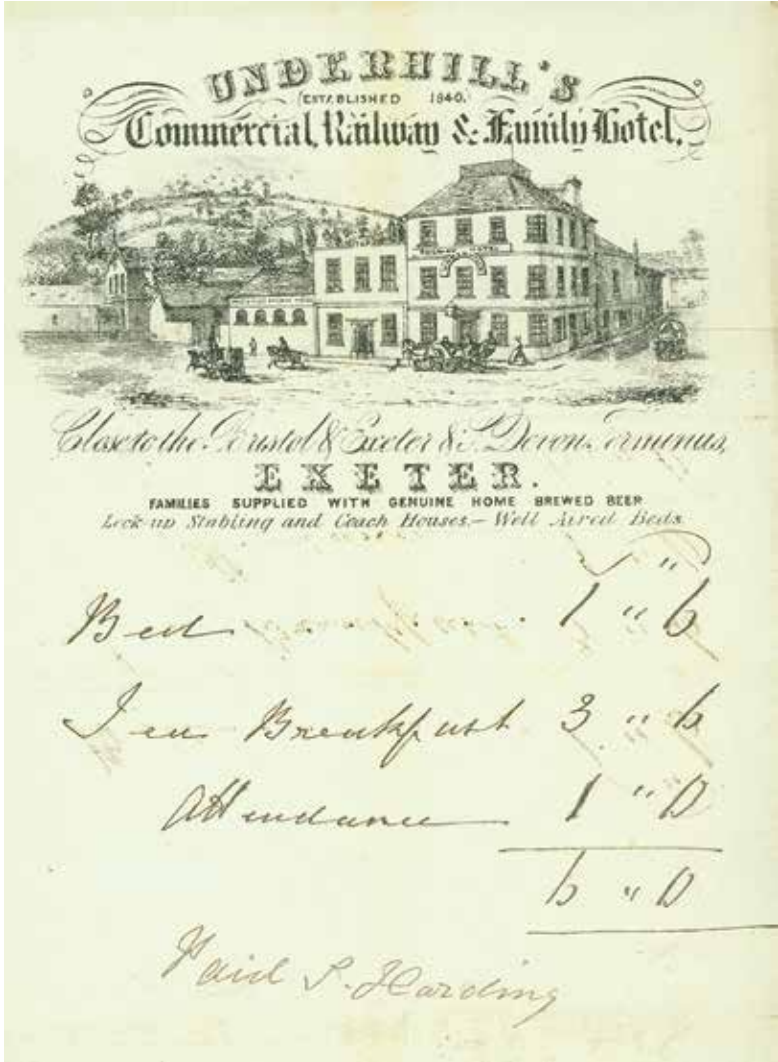 UNDERHILL'S
ESTABLISHED 1840.
Commercial, Railway & Family Hotel,
Close to the Bristol & Exeter & S. Devon Terminus,
EXETER.
FAMILIES SUPPLIED WITH GENUINE HOME BREWED BEER
Lock-up Stabling and Coach Houses.— Well Aired Beds
Bed . . . . . . . 1 " 6
Tea Breakfast 3 " 6
Attendance 1 " 0
6 " 0
Paid S. Harding